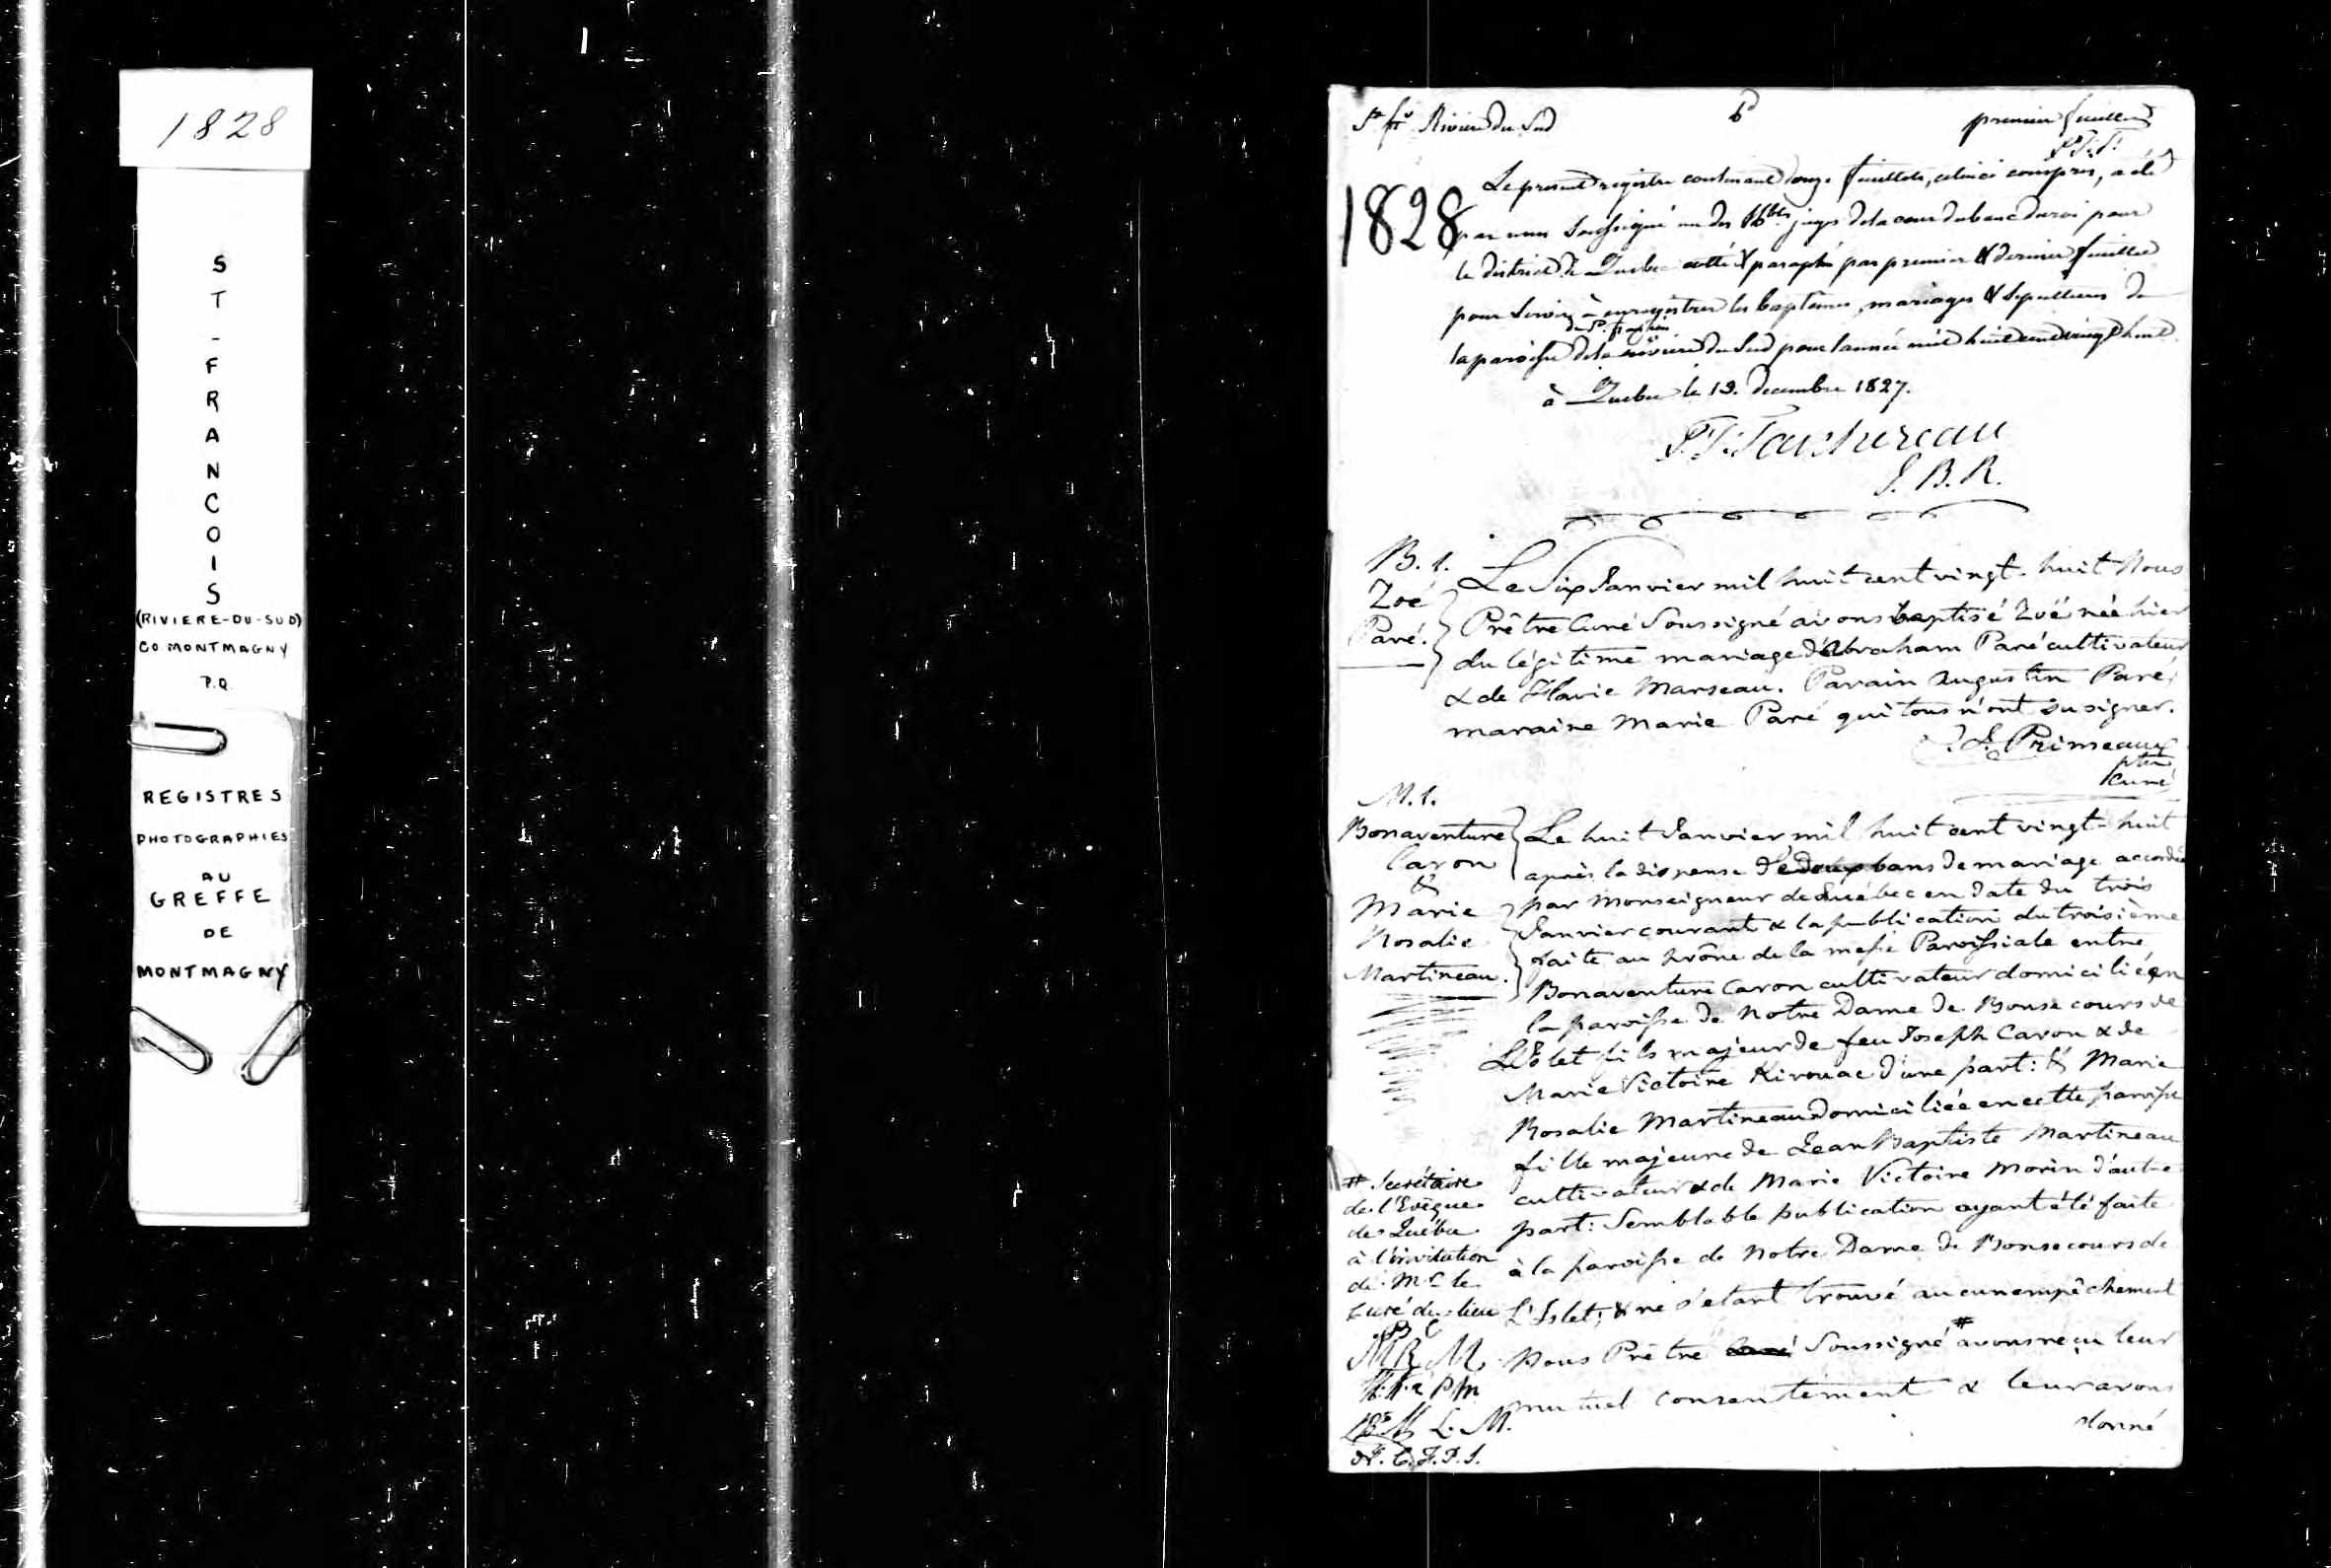 1828
ST-FRANCOIS
(RIVIERE-DU-SUD)
CO MONTMAGNY
P.Q.
REGISTRES
PHOTOGRAPHIES
AU
GREFFE
DE
MONTMAGNY
Rivière du Sud
premier feuillet
1828
Le present registre contenant douze feuillets, celui ci compris, a été
par nous Soussigné un des juges de la cour du banc du roi pour
le district de Quebec cotté & paraphé par premier & dernier feuillet
pour Servir à enregistrer les baptêmes, mariages & Sepultures de
la paroisse de la rivière du Sud pour l'année mil huit cent vingt huit.
à Quebec le 19. decembre 1827.
Taschereau
J. B. R.
B. 1.
Zoé
Paré.
Le Six Janvier mil huit cent vingt-huit Nous
Prêtre Curé Soussigné avons baptisé Zoé née hier
du légitime mariage d'Abraham Paré cultivateur
& de Flavie Marseau. Parain Augustin Paré,
maraine Marie Paré qui tous n'ont su signer.
Primeaux
ptre
curé
M. 1.
Bonaventure
Caron
&
Marie
Rosalie
Martineau.
Le huit Janvier mil huit cent vingt-huit
après la dispense de deux bans de mariage accordée
par Monseigneur de Québec en date du trois
Janvier courant & la publication du troisième
faite au prône de la messe Paroissiale entre
Bonaventure Caron cultivateur domicilié en
la paroisse de Notre Dame de Bonsecours de
L'Islet fils majeur de feu Joseph Caron & de
Marie Victoire Kirouac d'une part: & Marie
Rosalie Martineau domiciliée en cette paroisse
fille majeure de Jean Baptiste Martineau
cultivateur & de Marie Victoire Morin d'autre
part: Semblable publication ayant été faite
à la paroisse de Notre Dame de Bonsecours de
L'Islet; & ne s'étant trouvé aucun empêchement
Nous Prêtre Curé Soussigné # avons reçu leur
mutuel consentement & leur avons
donné
# Secrétaire
de l'Evêque
de Québec
à l'invitation
de Mr le
curé du lieu
B C
M R M
L. M.